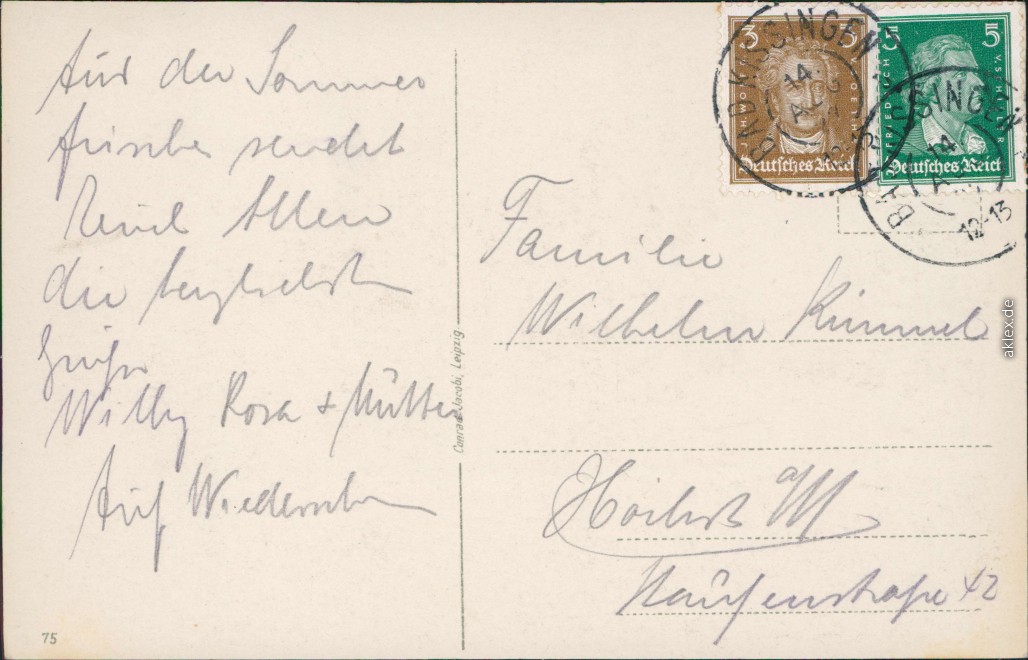 Aus der Sommer
frische sendet
Euch Allen
die herzlichsten
Grüße
Willy Rosa + Mutter
Auf Wiedersehen
75
Conrad Jacobi, Leipzig
3 3
Deutsches Reich
5 5
FRIEDRICH V. SCHILLER
Deutsches Reich
BAD KISSINGEN
14.
BAD KISSINGEN
14
12-13
Familie
Wilhelm Kümmel
Höchst a/M
42
aklex.de